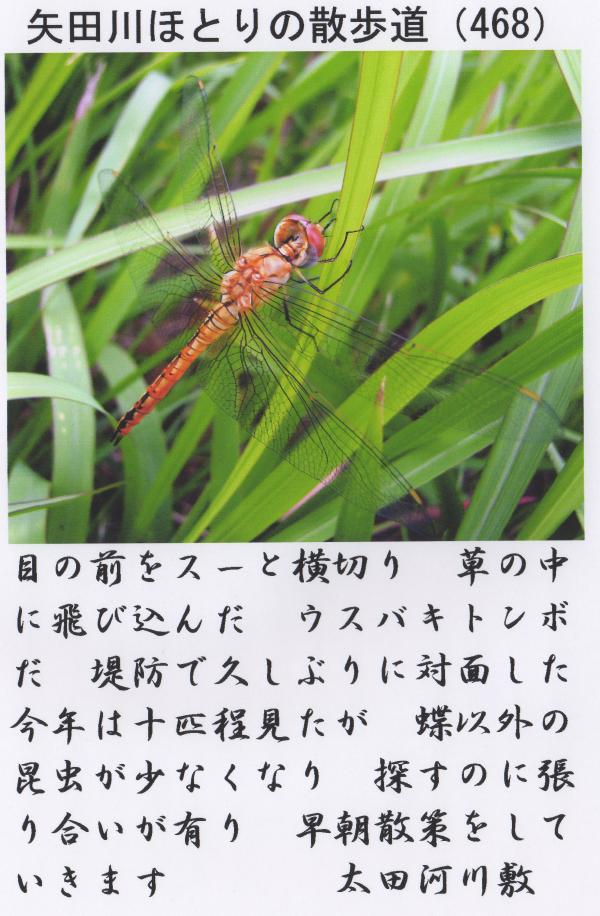 矢田川ほとりの散歩道（468）
目の前をスーと横切り　草の中
に飛び込んだ　ウスバキトンボ
だ　堤防で久しぶりに対面した
今年は十匹程見たが　蝶以外の
昆虫が少なくなり　探すのに張
り合いが有り　早朝散策をして
いきます　　　　太田河川敷